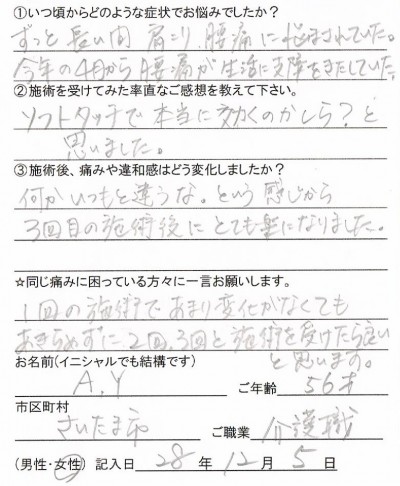 ①いつ頃からどのような症状でお悩みでしたか？
ずっと長い間 肩こり、腰痛に悩まされていた。
今年の4月から腰痛が生活に支障をきたしていた。
②施術を受けてみた率直なご感想を教えて下さい。
ソフトタッチで本当に効くのかしら？と
思いました。
③施術後、痛みや違和感はどう変化しましたか？
何かいつもと違うな。という感じから
3回目の施術後にとても楽になりました。
☆同じ痛みに困っている方々に一言お願いします。
1回の施術であまり変化がなくても
あきらめずに2回、3回と施術を受けたら良い
と思います。
お名前(イニシャルでも結構です)
A.Y ご年齢 56才
市区町村
さいたま市 ご職業 介護職
(男性・女性) 記入日 28 年 12 月 5 日